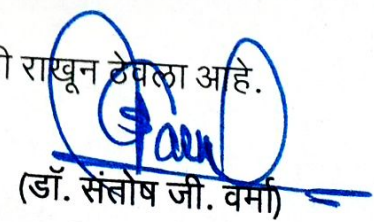 ी राखून ठेवला आहे.
(डॉ. संतोष जी. वर्मा)